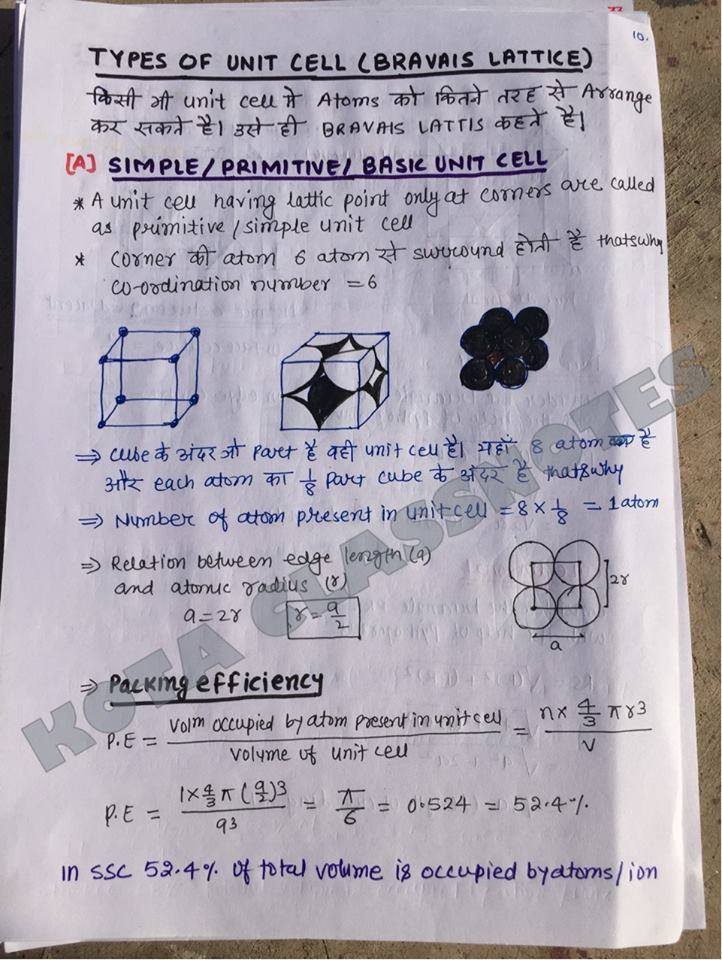 10.
TYPES OF UNIT CELL (BRAVAIS LATTICE)
किसी भी unit cell मे Atoms को कितने तरह से Arrange
कर सकते है। उसे ही BRAVAIS LATTIS कहते है।
[A] SIMPLE/PRIMITIVE/BASIC UNIT CELL
* A unit cell having lattic point only at corners are called
as primitive/simple unit cell
* Corner की atom 6 atom से surround होती है thatswhy
co-ordination number = 6
⇒ Cube के अंदर जो Part है वही unit cell है। यहाँ 8 atom है
और each atom का 1/8 part cube के अंदर है thatswhy
⇒ Number of atom present in unit cell = 8 × 1/8 = 1 atom
⇒ Relation between edge length (a)
and atomic radius (r)
a = 2r r = a/2
2r
a
⇒ Packing efficiency
P.E = Volm occupied by atom present in unit cell / Volume of unit cell = n × 4/3 π r3 / V
P.E = 1 × 4/3 π (a/2)3 / a3 = π/6 = 0.524 = 52.4%
In SSC 52.4% of total volume is occupied by atoms/ion
KOTA CLASSNOTES